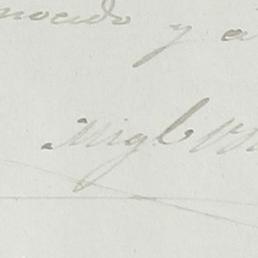 nocido y a
Migl